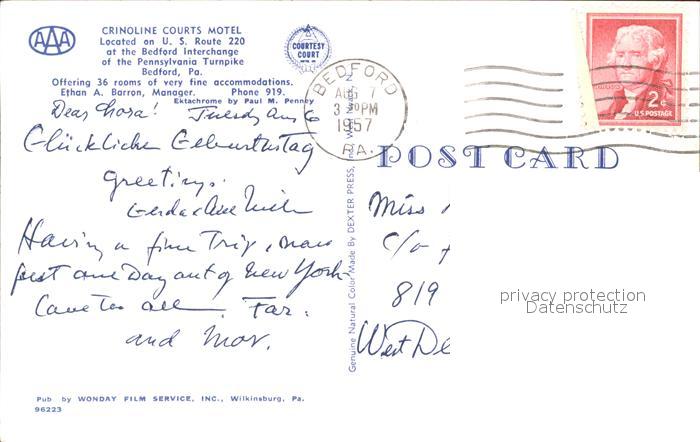 AAA
CRINOLINE COURTS MOTEL
Located on U. S. Route 220
at the Bedford Interchange
of the Pennsylvania Turnpike
Bedford, Pa.
Offering 36 rooms of very fine accommodations.
Ethan A. Barron, Manager. Phone 919.
Ektachrome by Paul M. Penney
COURTESY
COURT
Dear
Tuesday Aug 6
Glücklichen Geburtstag
greetings.
Having a fine Trip, now
just one Day out of New York
Love to all. Far.
and Mor.
Pub by WONDAY FILM SERVICE, INC., Wilkinsburg, Pa.
96223
Genuine Natural Color Made By DEXTER PRESS,
BEDFORD
AUG 7
3 PM
1957
PA.
2¢
U.S. POSTAGE
POST CARD
Miss
c/o
819
West De
privacy protection
Datenschutz